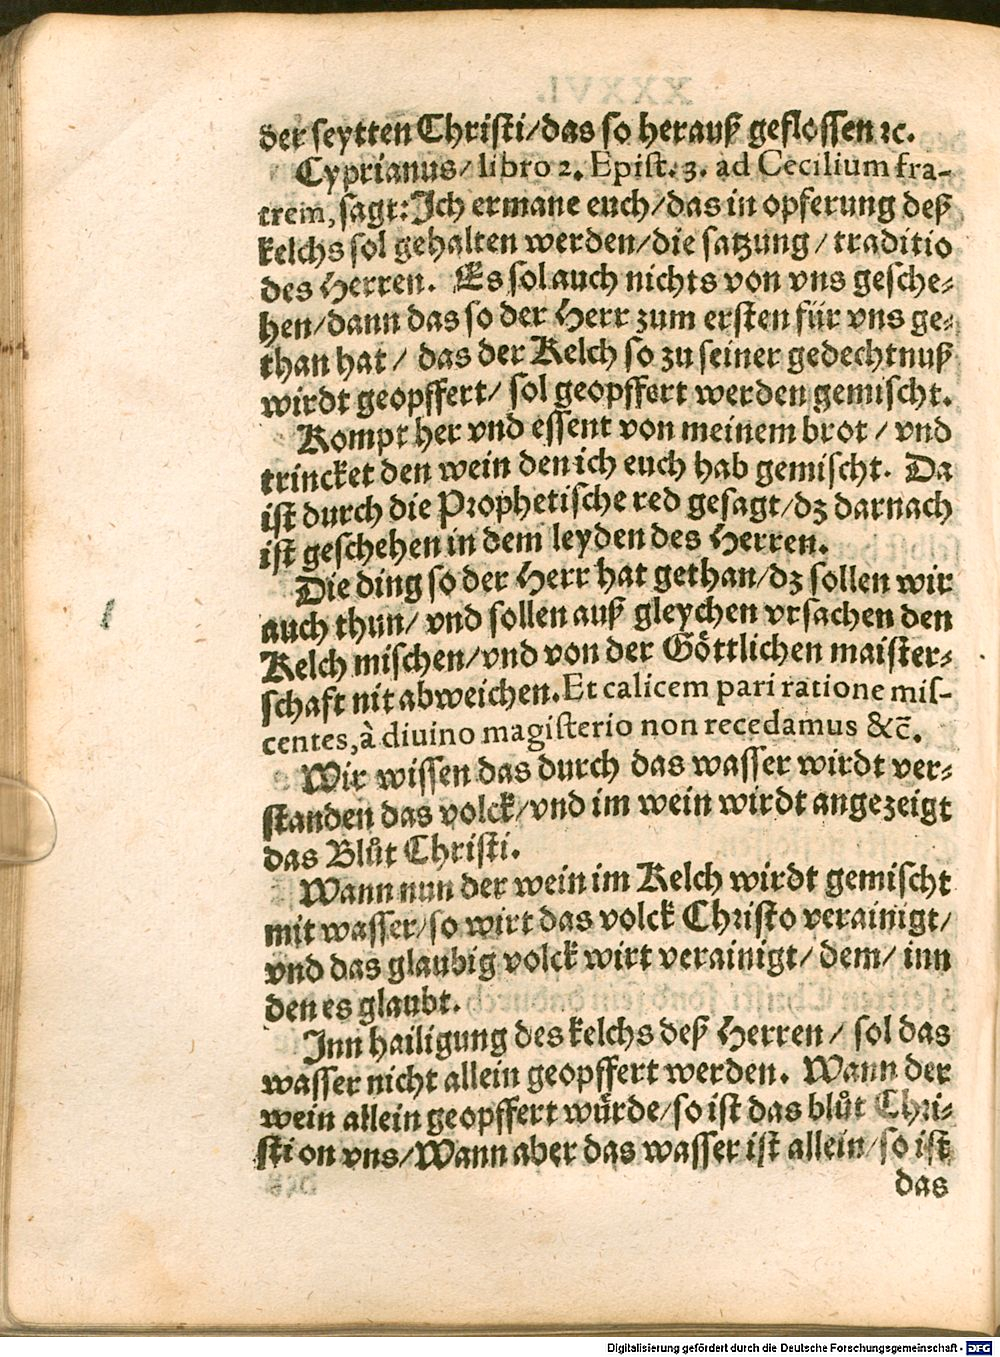 der seytten Christi/das so herauß geflossen ꝛc.
Cyprianus/ libro 2. Epist. 3. ad Cecilium fra-
trem, sagt: Ich ermane euch/das in opferung deß
kelchs sol gehalten werden/die satzung/ traditio
des Herren. Es sol auch nichts von vns gesche-
hen/dann das so der Herr zum ersten für vns ge-
than hat/ das der Kelch so zu seiner gedechtnuß
wirdt geopffert/ sol geopffert werden gemischt.
Kompt her vnd essent von meinem brot/ vnd
trincket den wein den ich euch hab gemischt. Da
ist durch die Prophetische red gesagt/dz darnach
ist geschehen in dem leyden des Herren.
Die ding so der Herr hat gethan/dz sollen wir
auch thun/ vnd sollen auß gleychen vrsachen den
Kelch mischen/vnd von der Göttlichen maister-
schaft nit abweichen. Et calicem pari ratione mis-
centes, à diuino magisterio non recedamus &c̄.
Wir wissen das durch das wasser wirdt ver-
standen das volck/vnd im wein wirdt angezeigt
das Blůt Christi.
Wann nun der wein im Kelch wirdt gemischt
mit wasser/so wirt das volck Christo verainigt/
vnd das glaubig volck wirt verainigt/ dem/ inn
den es glaubt.
Inn hailigung des kelchs deß Herren/ sol das
wasser nicht allein geopffert werden. Wann der
wein allein geopffert würde/so ist das blůt Chri-
sti on vns/Wann aber das wasser ist allein/so ist
das
Digitalisierung gefördert durch die Deutsche Forschungsgemeinschaft - DFG